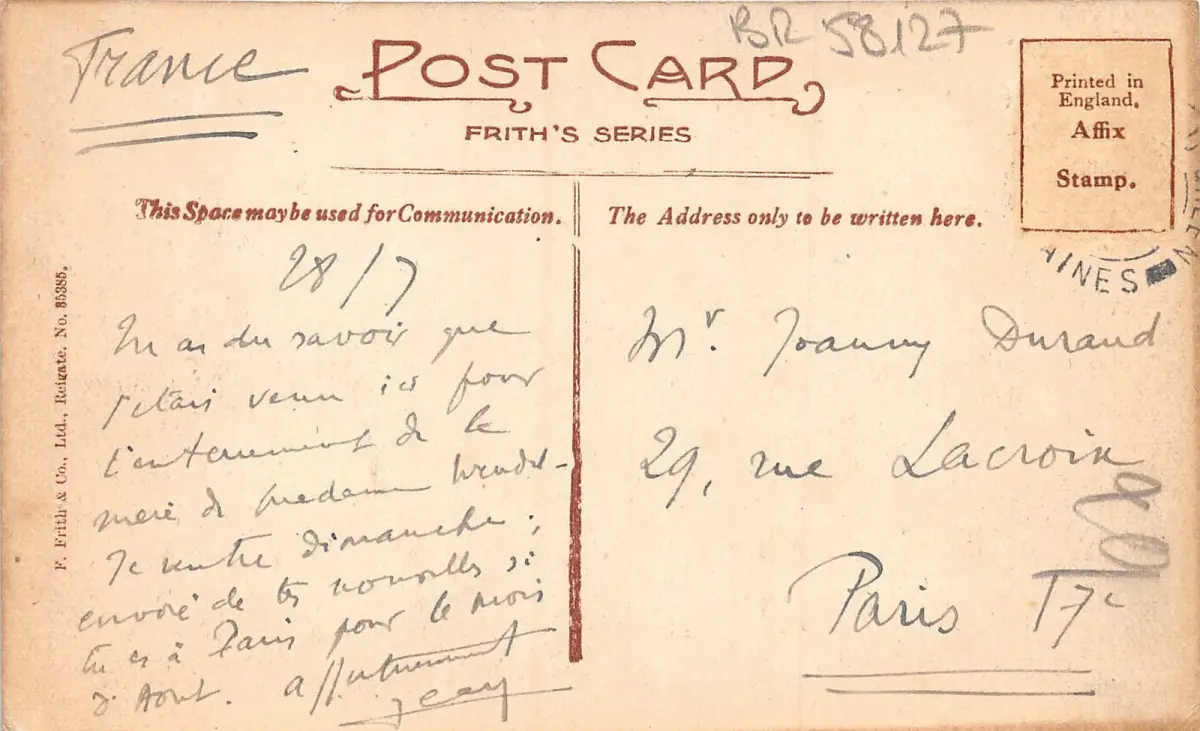 France
BR 58127
POST CARD
FRITH'S SERIES
Printed in
England.
Affix
Stamp.
AINES
This Space may be used for Communication.
The Address only to be written here.
F. Frith & Co., Ltd., Reigate. No. 85385.
28/7
Tu as du savoir que
j'étais venu ici pour
l'enterrement de la
mère de madame
Je rentre dimanche ;
envoie de tes nouvelles si
tu es à Paris pour le mois
d'Aout. affectueusement
Jean
Mr. Joanny Durand
29, rue Lacroix
Paris 17e